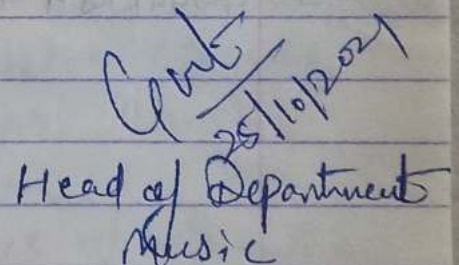 25/10/2021
Head of Department
Music